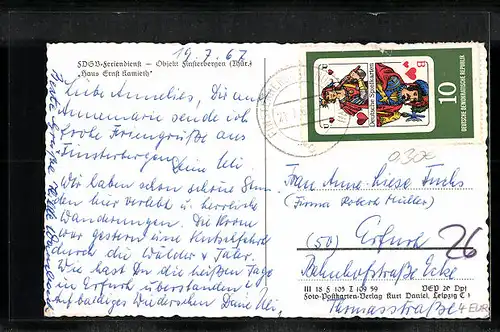 19.7.67
FDGB-Feriendienst — Objekt Finsterbergen (Thür.)
„Haus Ernst Kamieth"
Liebe Annelies, Dir und
Annemarie sende ich
frohe Feriengrüße aus
Finsterbergen. Deine Uli
Wir haben schon schöne Stun-
den hier verlebt u. herrliche
Wanderungen. Die Krone
war gestern eine Kutschfahrt
durch die Wälder u. Täler.
Wie hast Du die heißen Tage
in Erfurt überstanden?
Auf baldiges Wiedersehen Deine Uli,
Deutsche Spielkarten
B
10
DEUTSCHE DEMOKRATISCHE REPUBLIK
0300
Frau Anne-Liese Fuchs
(Firma Robert Müller)
(50) Erfurt
26
Bahnhofstraße Ecke
III 18 S 105 T 109 59
Foto-Postkarten-Verlag Kurt Daniel, Leipzig C 1
4 EUR